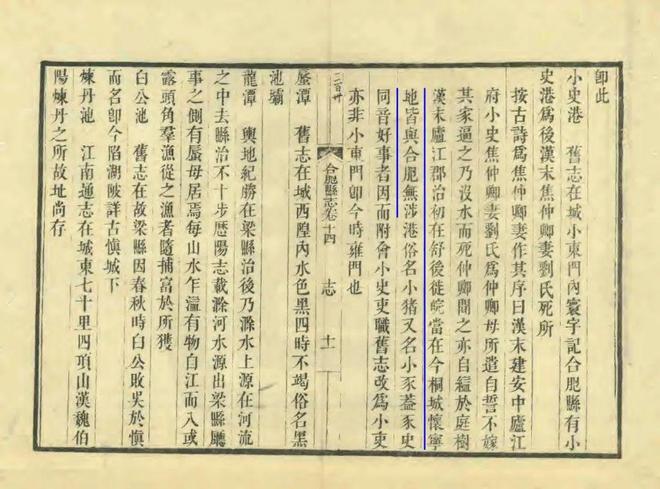 卽此
小史港　舊志在城小東門內寰宇記合肥縣有小
史港爲後漢末焦仲卿妻劉氏死所
按古詩爲焦仲卿妻作其序曰漢末建安中廬江
府小吏焦仲卿妻劉氏爲仲卿母所遣自誓不嫁
其家逼之乃沒水而死仲卿聞之亦自縊於庭樹
漢末廬江郡治初在舒後徙皖當在今桐城懷寧
地皆與合肥無涉港俗名小猪又名小豕蓋豕史
同音好事者因而附會小史吏職舊志改爲小吏
亦非小東門卽今時雍門也
二百廾
合肥縣志卷十四
志
十一
蜃潭　舊志在城西隍內水色黑四時不竭俗名黑
池壩
龍潭　輿地紀勝在梁縣治後乃滁水上源在河流
之中去縣治不十步歷陽志載滁河水源出梁縣廳
事之側有蜃母居焉每山水乍溢有物自江而入或
露頭角羣漁從之漁者隨捕富於所獲
白公池　舊志在故梁縣因春秋時白公敗吳於愼
而名卽今陷湖陂詳古愼城下
煉丹池　江南通志在城東七十里四頂山漢魏伯
陽煉丹之所故址尚存